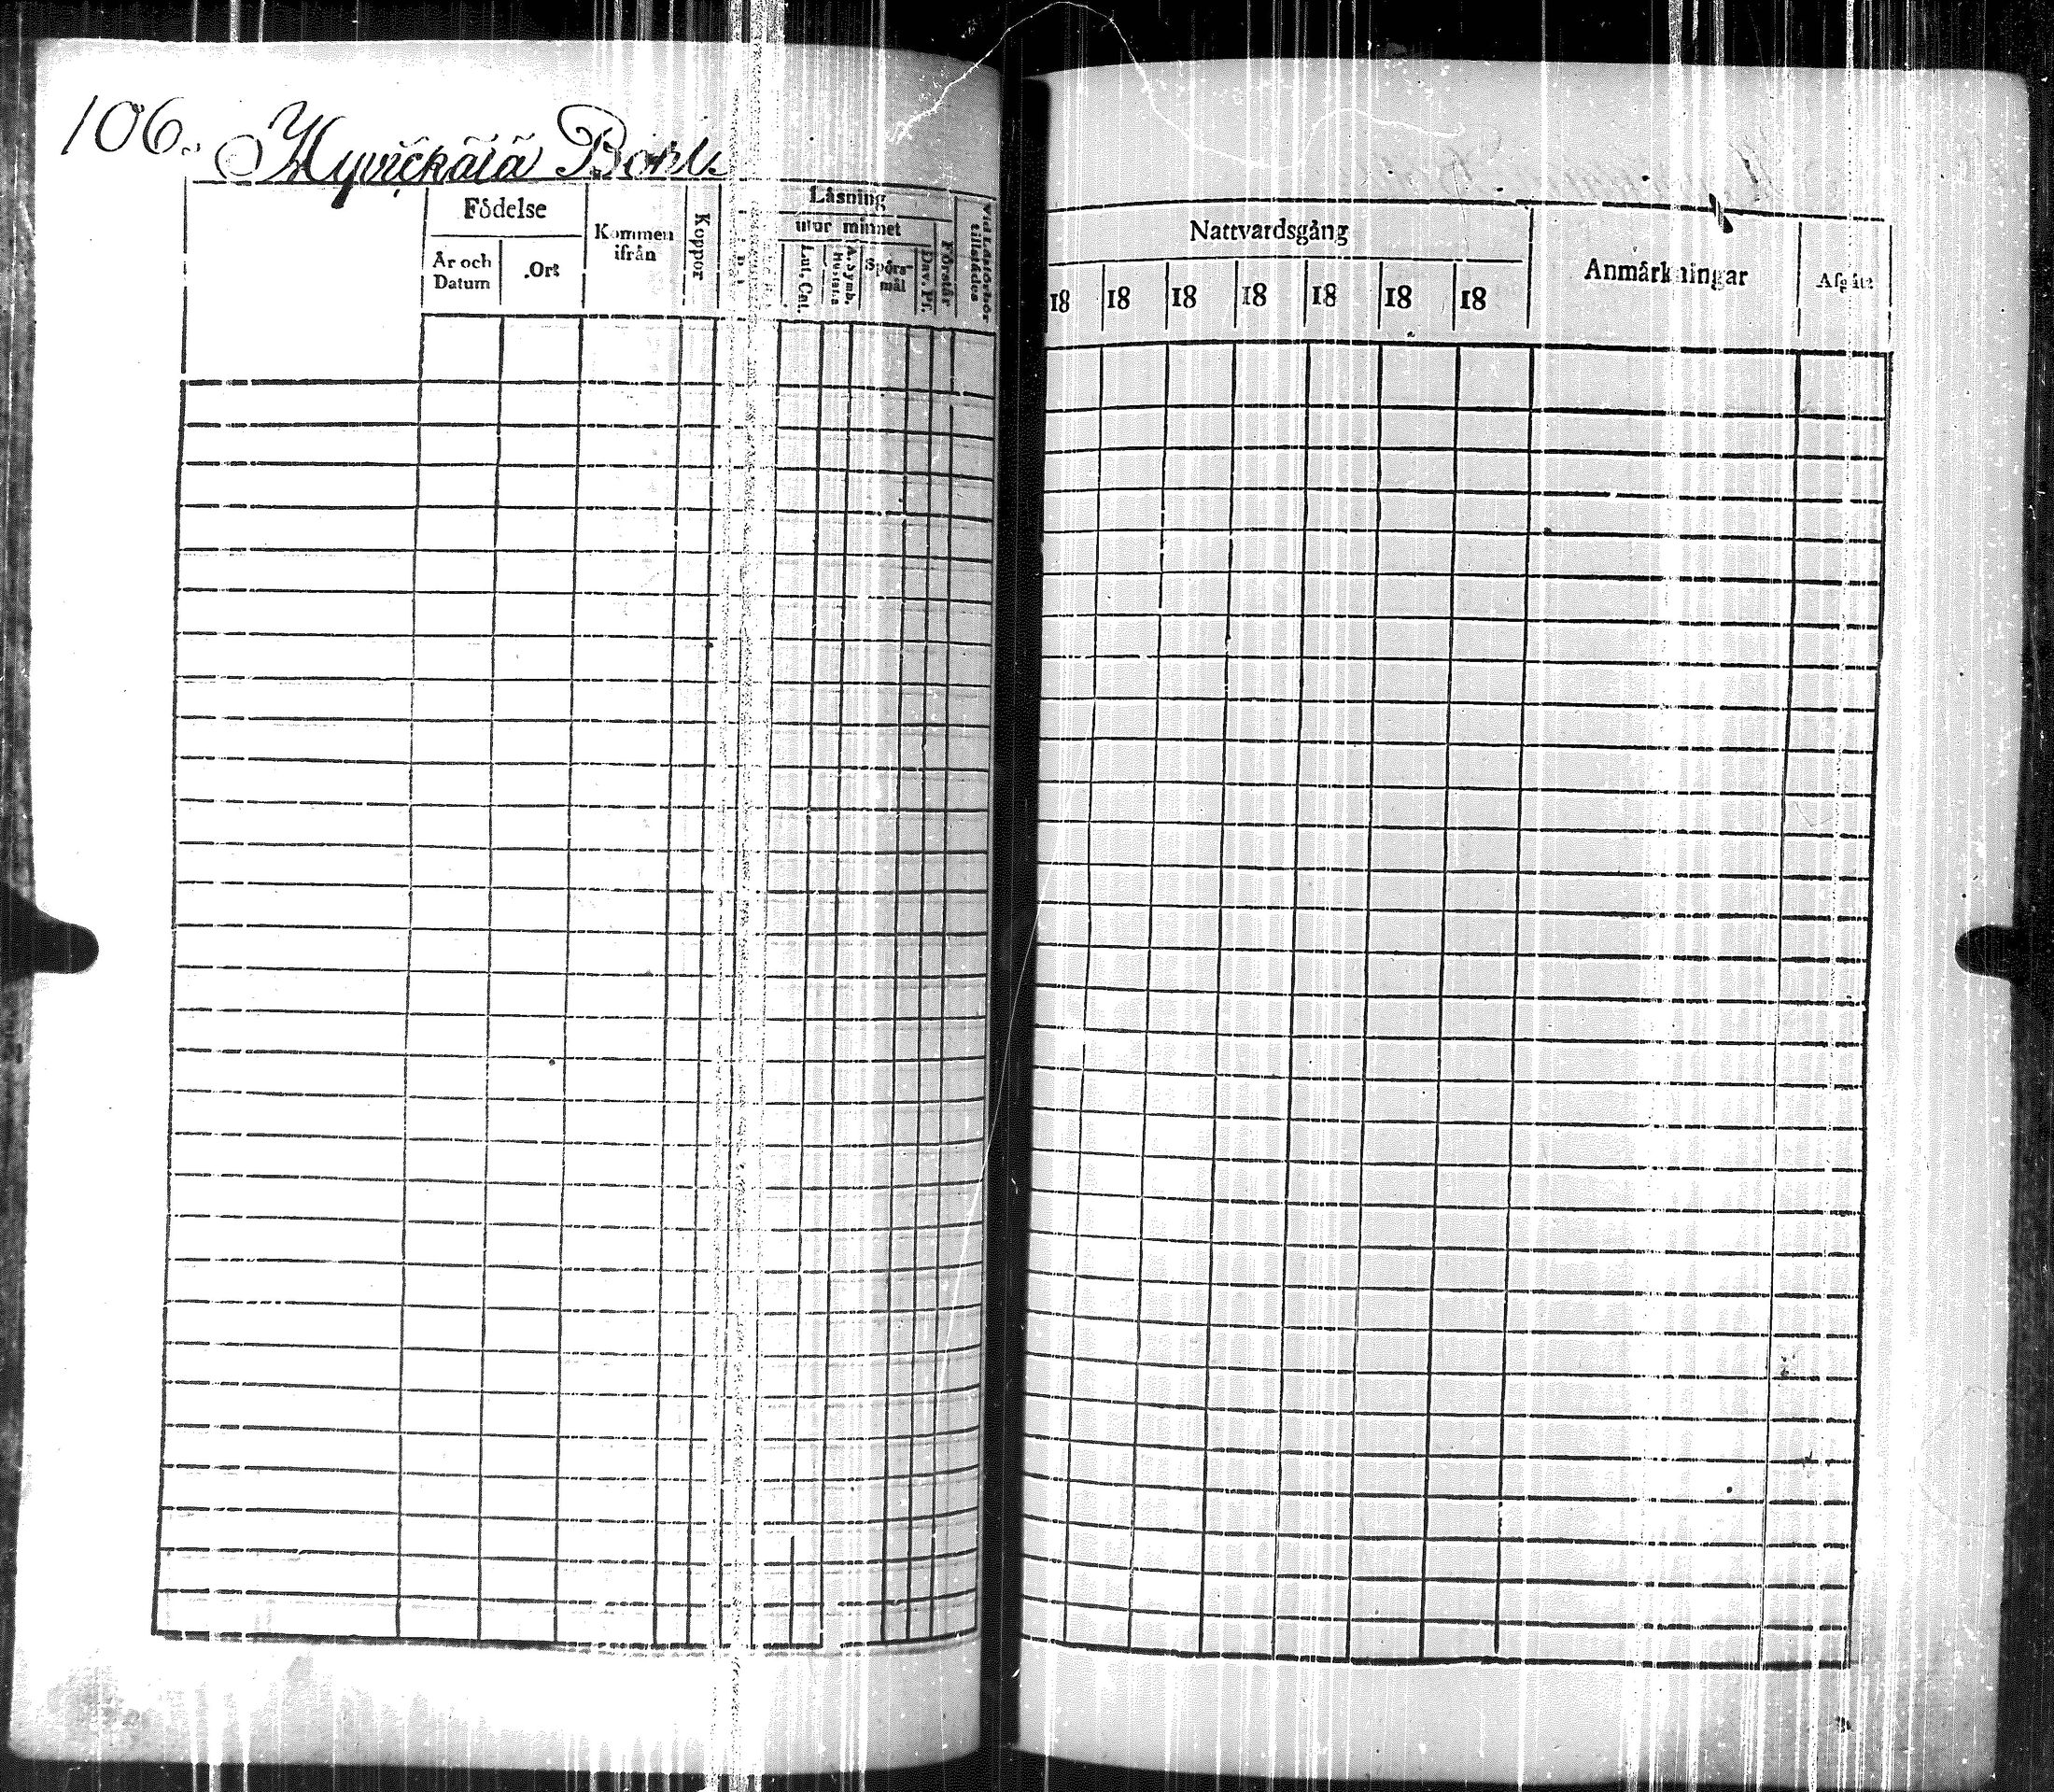 106. Hyvickälä Bohl.
Födelse
År och Datum
Ort
Kommen ifrån
Koppor
Läsning
utur minnet
Lut. Cat.
A. Symb.
Hustafla
Spörs-mål
Dav. Ps.
Förstår
Vid Läsförhör tillstädes
Nattvardsgång
18 18 18 18 18 18 18
Anmärkningar
Afgått